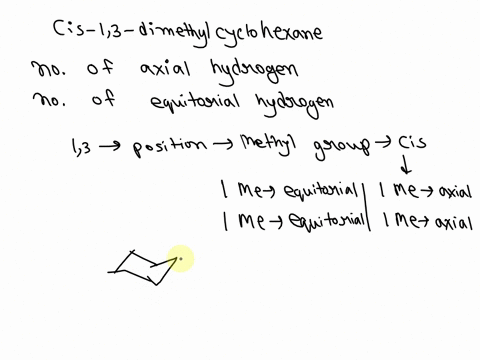 Cis-1,3-dimethyl cyclohexane
no. of axial hydrogen
no. of equitorial hydrogen
1,3 → position → Methyl group → cis
↓
1 Me → equitorial | 1 Me → axial
1 Me → equitorial | 1 Me → axial